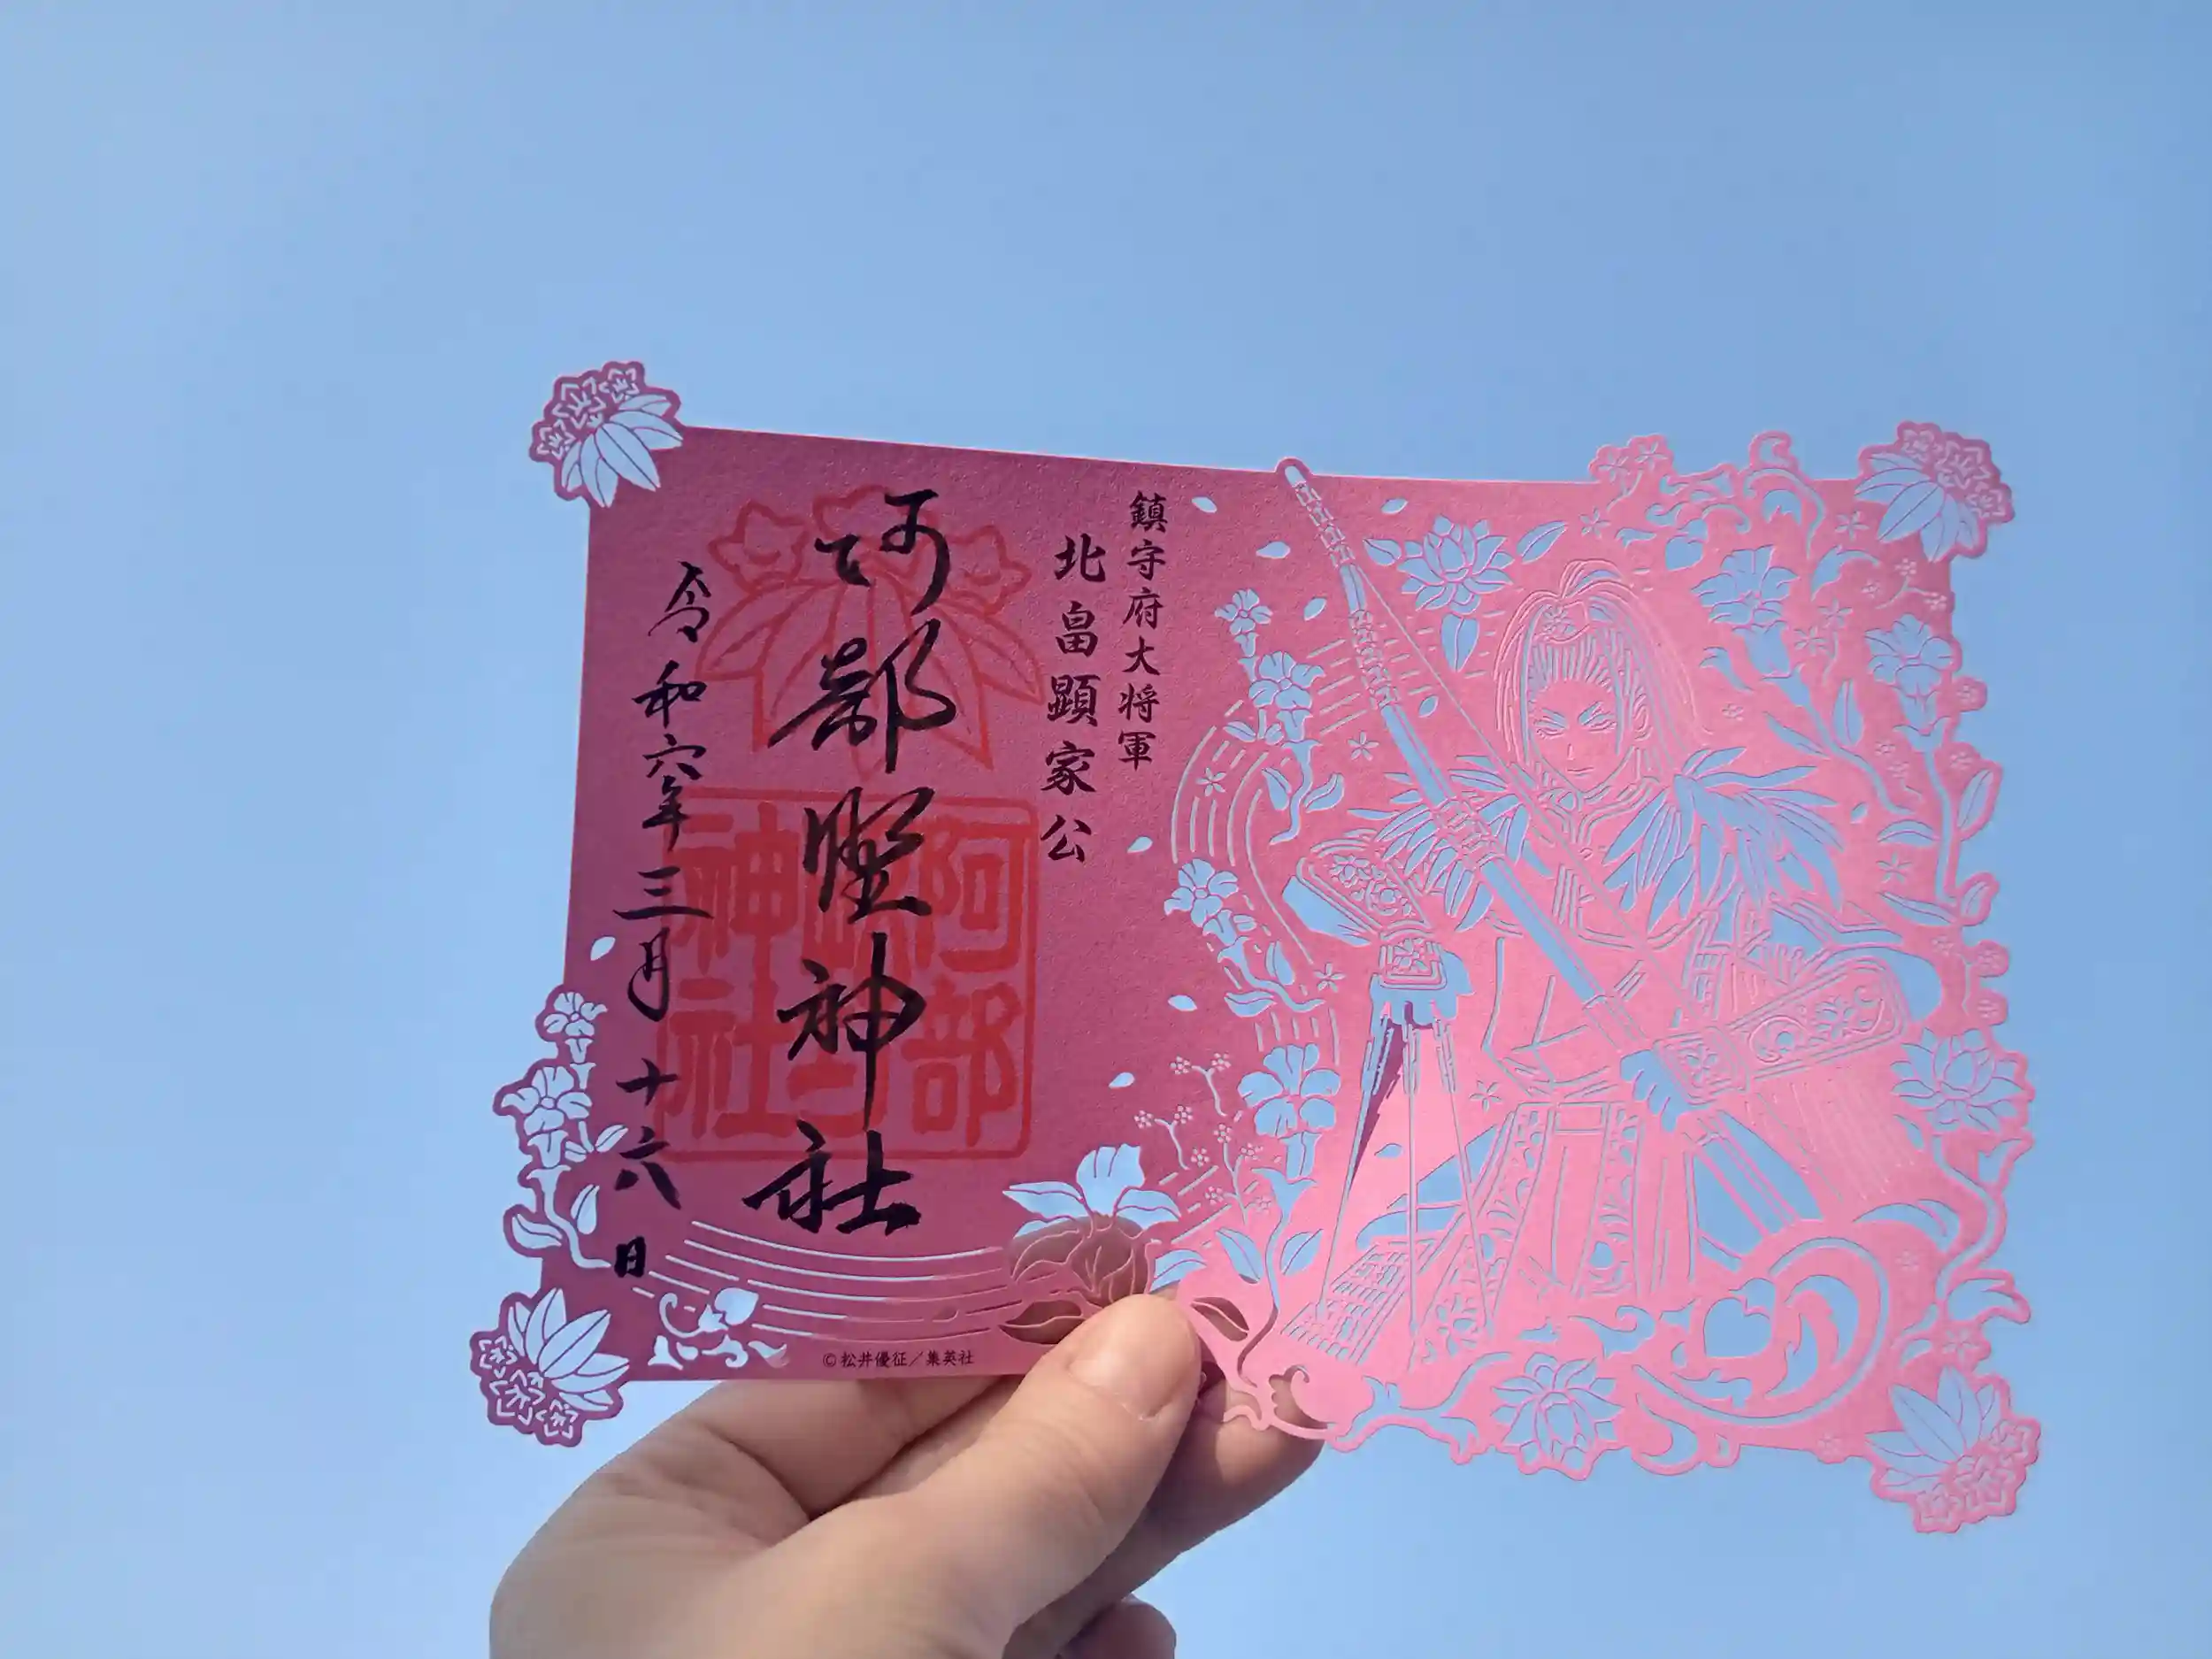 鎮守府大将軍
北畠顕家公
阿部野神社
令和六年三月十六日
阿部野神社
©松井優征／集英社